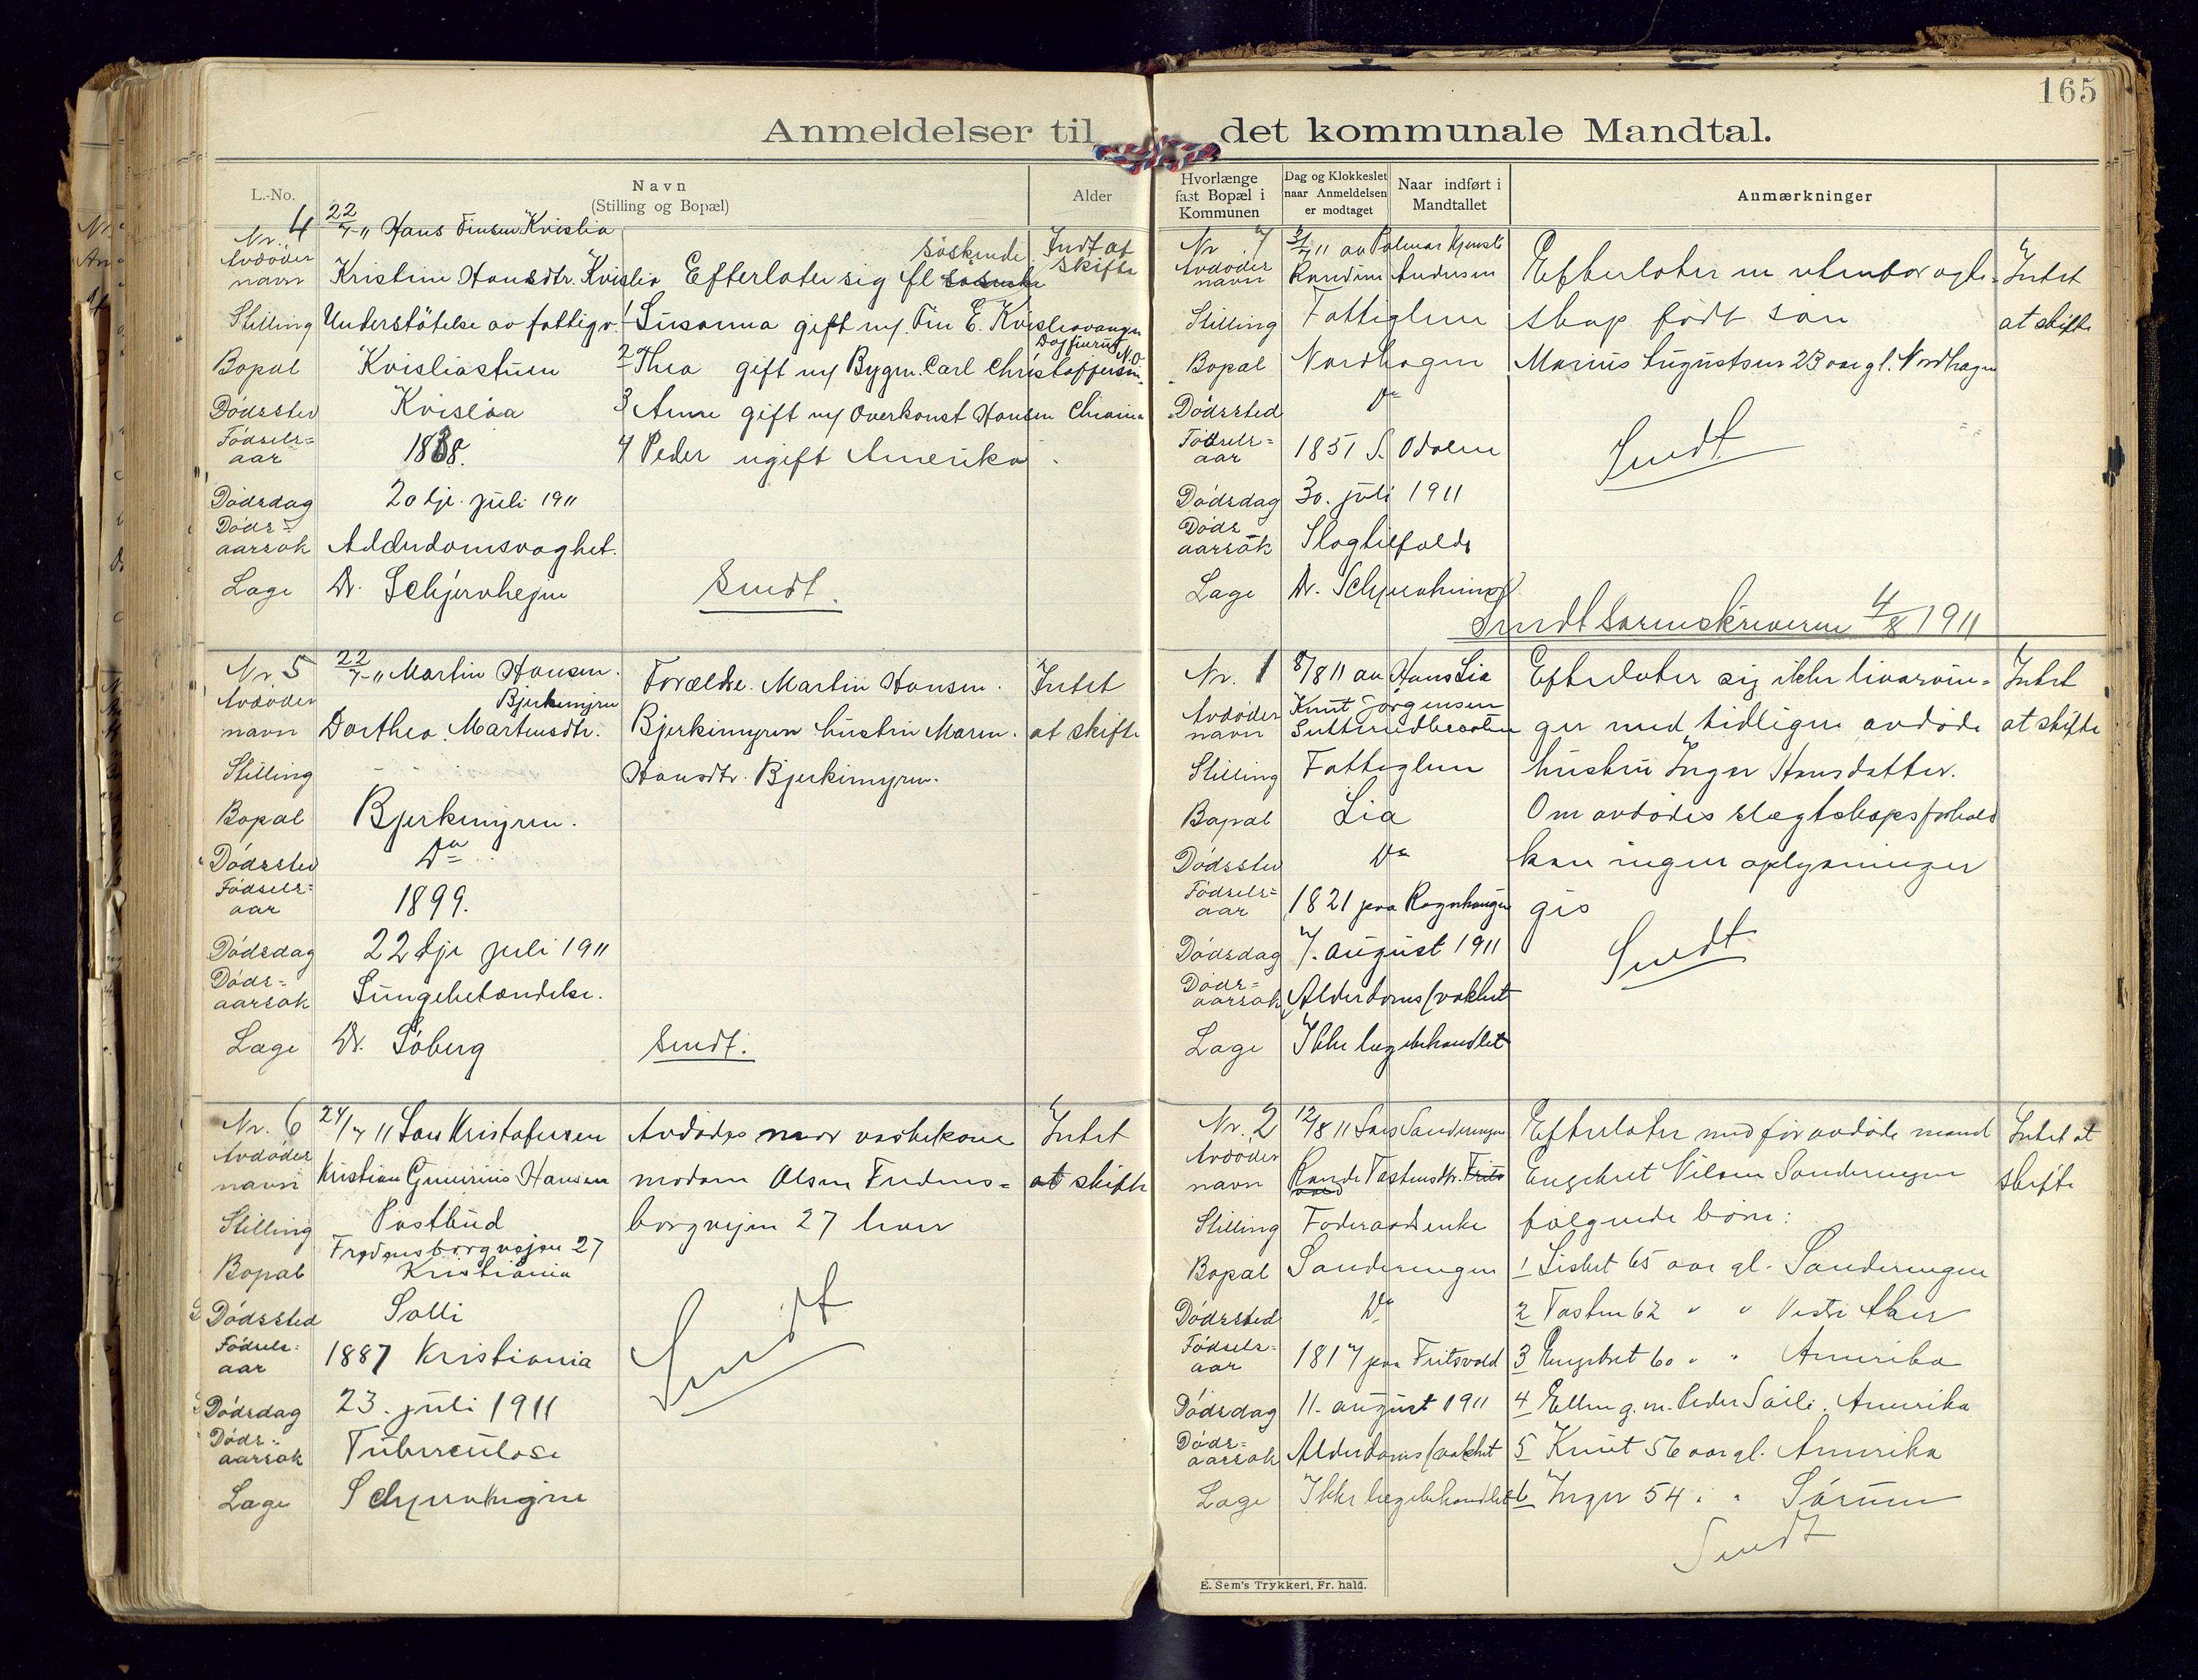 165
Anmeldelser til det kommunale Mandtal.
L.-No.
Navn
(Stilling og Bopæl)
Alder
Nr. 4
22/7-11 Hans Finsen Kvislia
Avdødes navn
Kristine Hansdtr. Kvislia
Efterlater sig fl søskende
Intet at skifte
Stilling
Understøtelse av fattigv.
1 Susanna gift m/ Fin E. Kvisliavangen
Bopæl
Kvisliastuen
2 Thea gift m/ Bygm. Carl Christoffersen
Dødssted
Kvislia
3 Anne gift m/ Overkonst Hansen Chrania
Fødselsaar
1838.
4 Peder ugift Amerika
Dødsdag
20 dje. juli 1911
Dødsaarsak
Alderdomsvaghet.
Læge
Dr. Schjervhejm
Sendt.
Nr 5
22/7-11 Martin Hansen. Bjerkimyren
Avdødes navn
Dorthea. Martinsdtr.
Forældre. Martin Hansen.
Bjerkimyren hustru Maren.
Hansdtr. Bjerkimyren.
Intet
at skifte
Stilling
Bopæl
Bjerkimyren.
Dødssted
Do
Fødselsaar
1899.
Dødsdag
22 dje juli 1911
Dødsaarsak
Lungebetændelse.
Læge
Dr. Søberg
Sendt.
Nr. 6
24/7 11 Lars Kristofersen
Avdødes navn
Kristian Gunerius Hansen
Avdødes mor vaskekone
madam Olsen Fredens=
borgvejen 27 hver
Intet
at skifte
Stilling
Postbud
Bopæl
Fredensborgvejen 27
Kristiania
Dødssted
Solli
Fødselsaar
1887 Kristiania
Dødsdag
23. juli 1911
Dødsaarsak
Tuberculose
Læge
Schjervhejm
Sendt
Hvorlænge fast Bopæl i Kommunen
Dag og Klokkeslet naar Anmeldelsen er modtaget
Naar indført i Mandtallet
Anmærkninger
Nr. 7
31/7 11 av Palmar
Avdødes navn
Randine Andersen
Efterlater en utenfor egte-
skap født søn
Marius Augustsen 23 aar gl. Nordhagen
Intet
at skifte
Stilling
Fattiglem
Bopæl
Nordhagen
Dødssted
Do
Fødselsaar
1851 S. Odalen
Sendt
Dødsdag
30. juli 1911
Dødsaarsak
Slagtilfælde
Læge
Dr. Schjervheim
Sendt Sorenskriveren 4/8 1911
Nr. 1
8/8 11 av Hans Lia
Avdødes navn
Knut Jørgensen
Efterlater sig ikke livsarvin=
ger med tidligere avdøde
hustru Inger Hansdatter.
Om avdødes slægtskapsforhold
kan ingen oplysninger
gis
Intet
at skifte
Stilling
Fattiglem
Bopæl
Lia
Dødssted
Do
Fødselsaar
1821 paa Rognhaugen
Dødsdag
7. august 1911
Sendt
Dødsaarsak
Alderdomssvakhet
Læge
Ikke lægebehandlet
Nr. 2
12/8 11 Lars Sanderengen
Avdødes navn
Rande Tostensdtr.
Efterlater med før avdøde mand
Engebret Nilsen Sanderengen
følgende børn:
Intet at
skifte
Stilling
Føderaadsenke
Bopæl
Sanderengen
1 Lisbet 65 aar gl. Sanderengen
Dødssted
Do
2 Tosten 62 " " Vestre Aker
Fødselsaar
1817 paa Fritsvold
3 Engebret 60 " " Amerika
Dødsdag
11. august 1911
4 Ellen g. m. Peder Amerika
Dødsaarsak
Alderdomssvakhet
5 Knut 56 aar gl. Amerika
Læge
Ikke lægebehandlet
6 Inger 54 " " Sørum
Sendt
E. Sem's Trykkeri, Fr. hald.